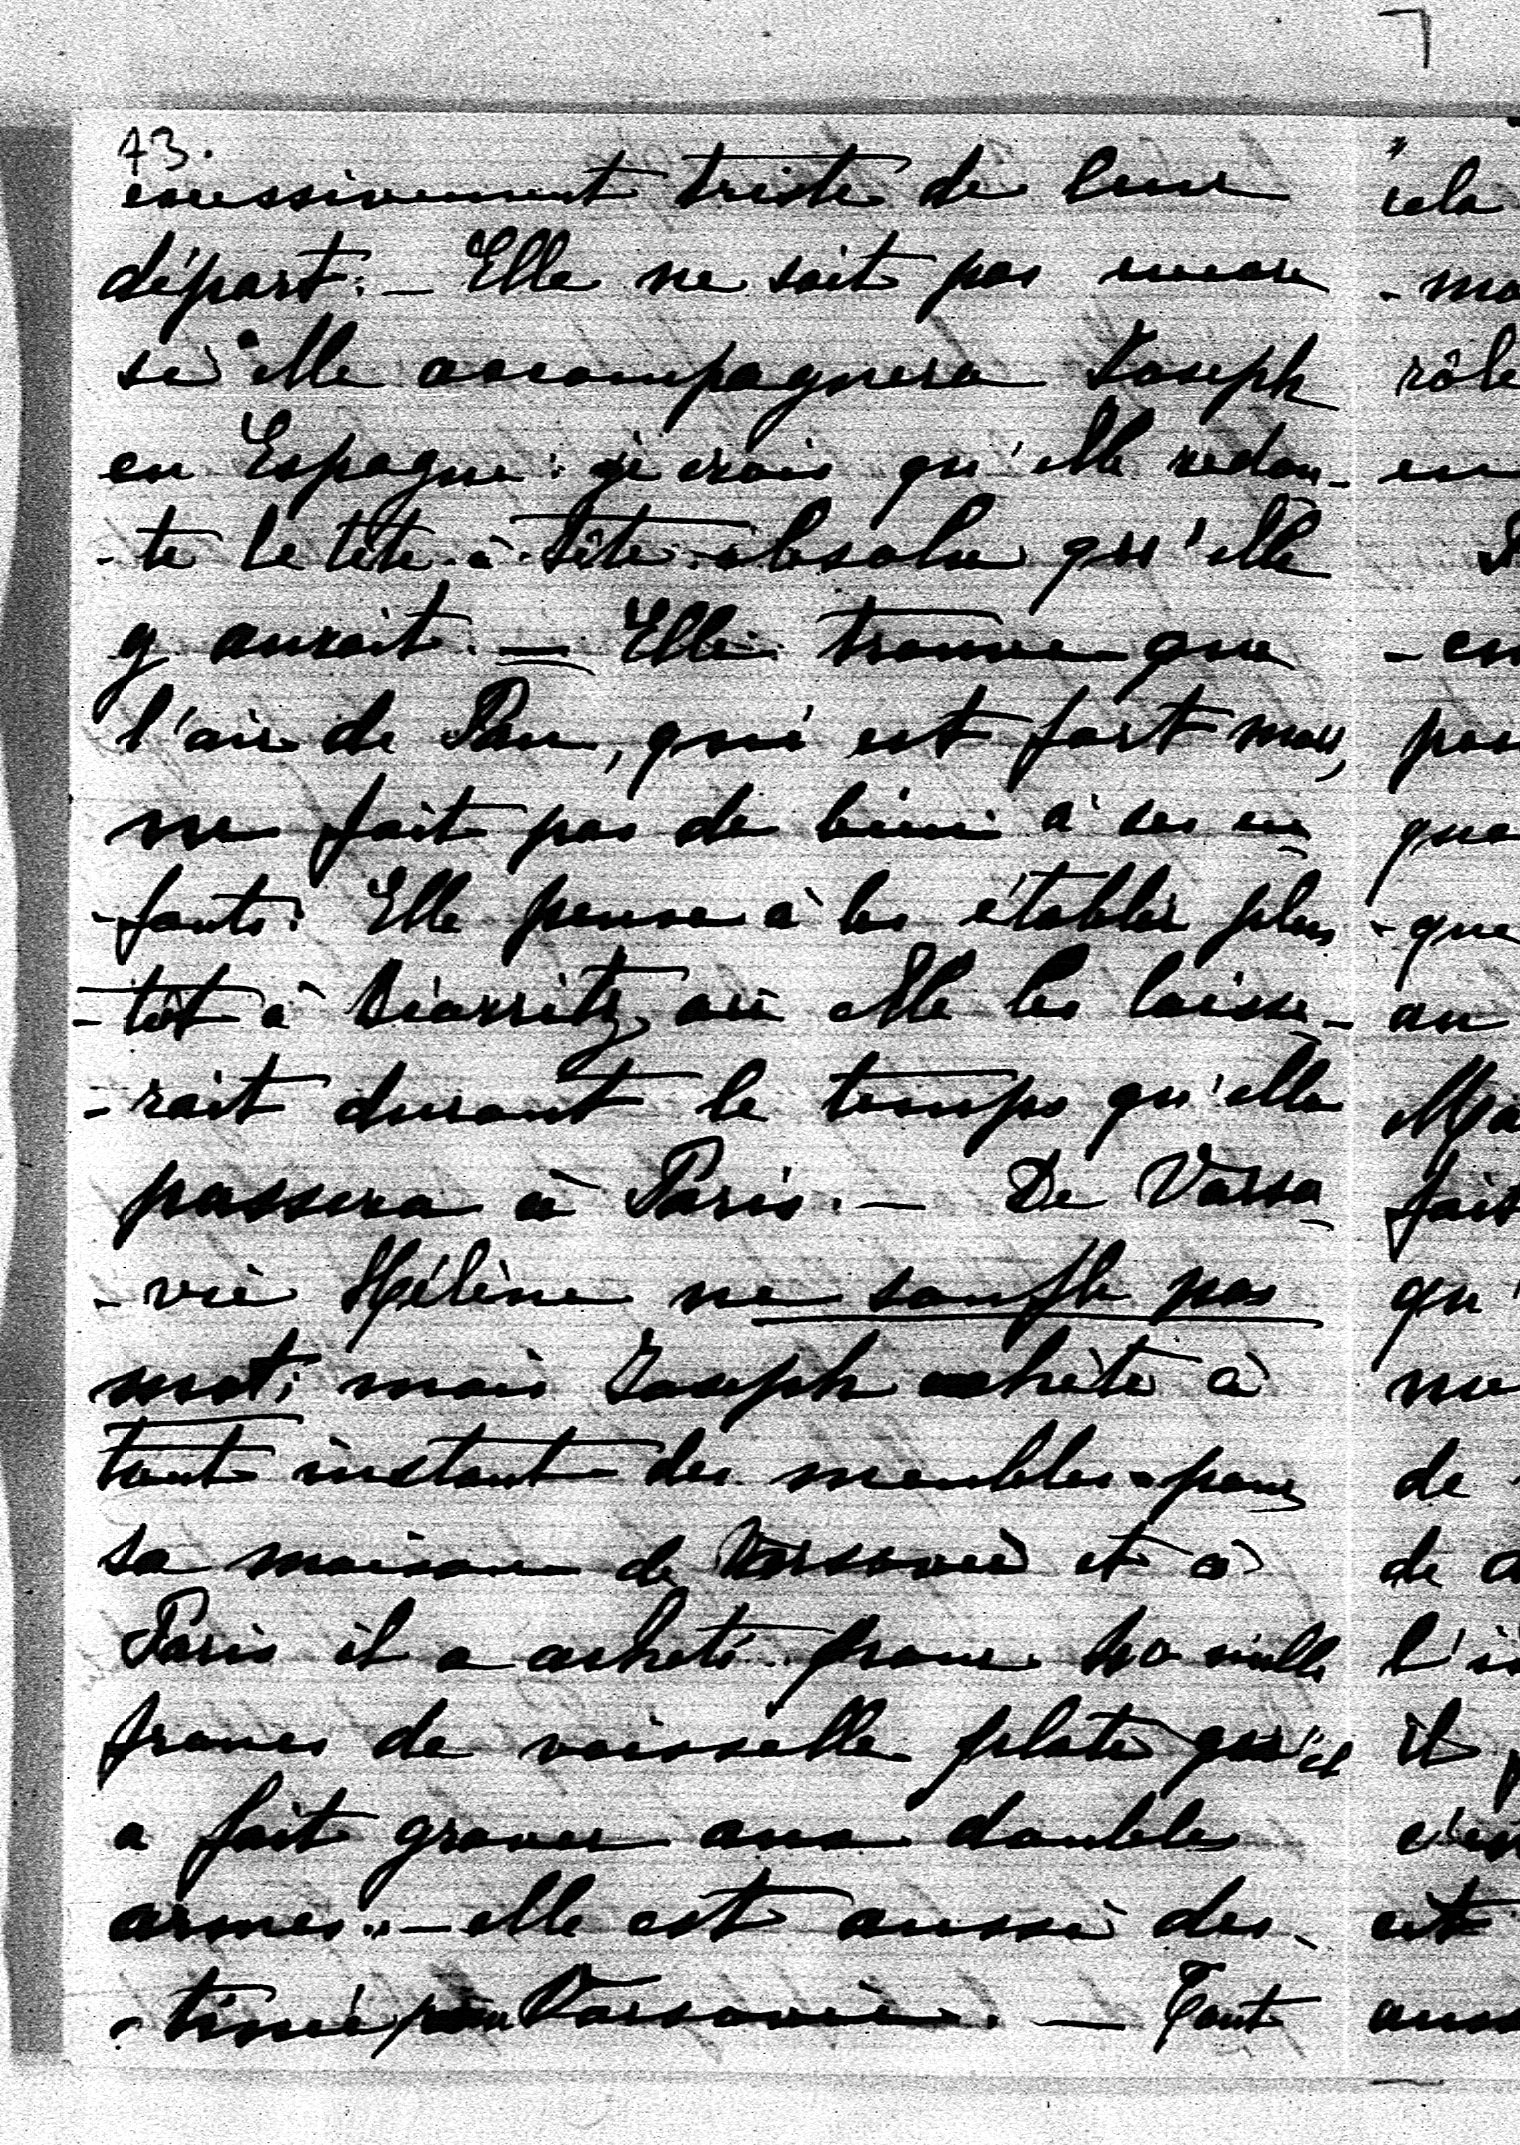 7
43.
excessivement triste de leur
départ. — Elle ne sait pas encore
si elle accompagnera Joseph
en Espagne: je crois qu'elle redou-
-te le tête-à-tête absolu qu'elle
y aurait. — Elle trouve que
l'air de Pau, qui est fort mou,
ne fait pas de bien à ses en-
-fants. Elle pense à les établir plu-
-tôt à Biarritz, où elle les laisse-
-rait durant le temps qu'elle
passera à Paris. — De Varso-
-vie Hélène ne souffle pas
mot; mais Joseph achète à
tout instant des meubles pour
sa maison de Varsovie et à
Paris il a acheté pour mille
francs de vaisselle plate qu'il
a fait graver aux doubles
armes. — elle est aussi des-
-tinée pour Varsovie. — Tout
cela
rôle
-en
-que
au
fait
qu'
de
de
il
est